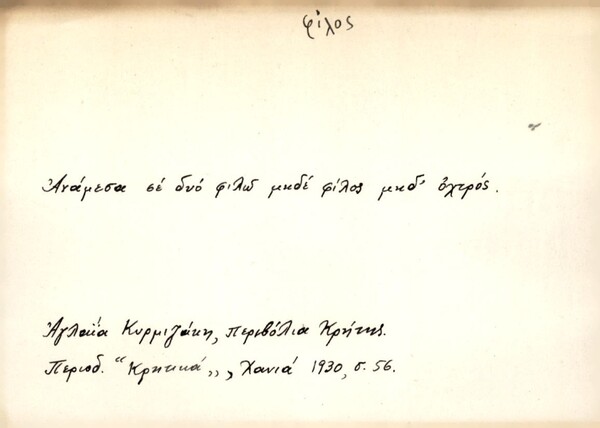 φίλος
Ἀνάμεσα σέ δυό φιλῶ μηδέ φίλος μηδ' ὀχτρός.
Ἀγλαΐα Κυρμιζάκη, Περιβόλια Κρήτης.
Περιοδ. "Κρητικά,,, Χανιά 1930, σ. 56.